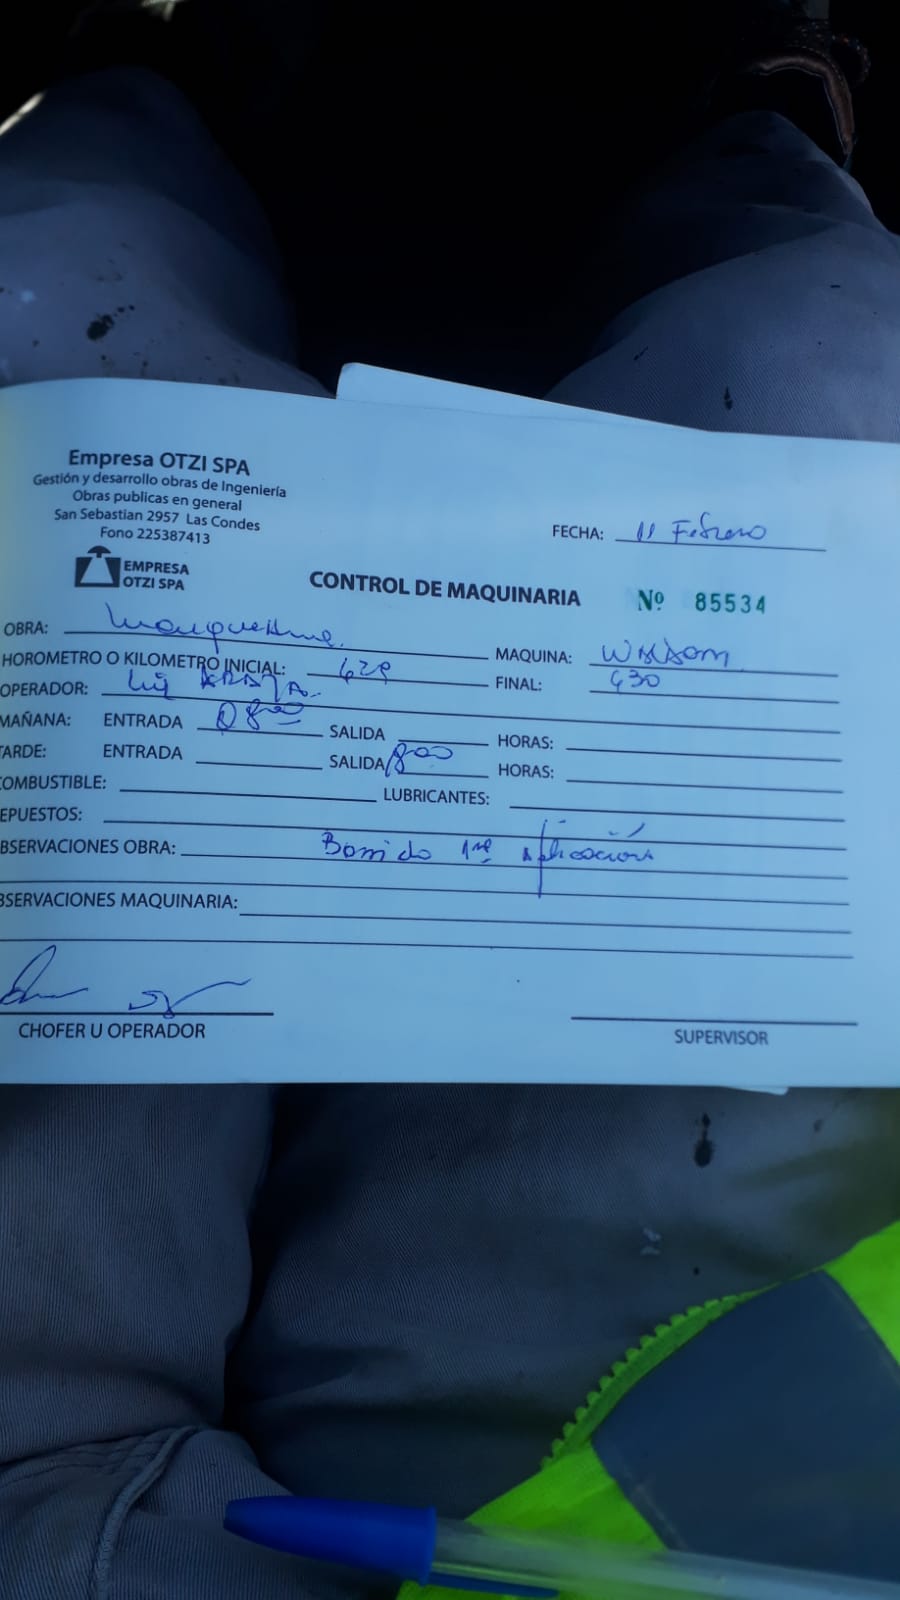 Empresa OTZI SPA
Gestión y desarrollo obras de Ingeniería
Obras publicas en general
San Sebastian 2957 Las Condes
Fono 225387413
EMPRESA
OTZI SPA
FECHA: 11 Febrero
CONTROL DE MAQUINARIA Nº 85534
OBRA: MAQUINA:
HOROMETRO O KILOMETRO INICIAL: 429 FINAL: 430
OPERADOR: Luis
MAÑANA: ENTRADA 0800 SALIDA HORAS:
TARDE: ENTRADA SALIDA 1800 HORAS:
COMBUSTIBLE: LUBRICANTES:
EPUESTOS:
BSERVACIONES OBRA: Barrido 1ra Aplicacion
BSERVACIONES MAQUINARIA:
CHOFER U OPERADOR
SUPERVISOR